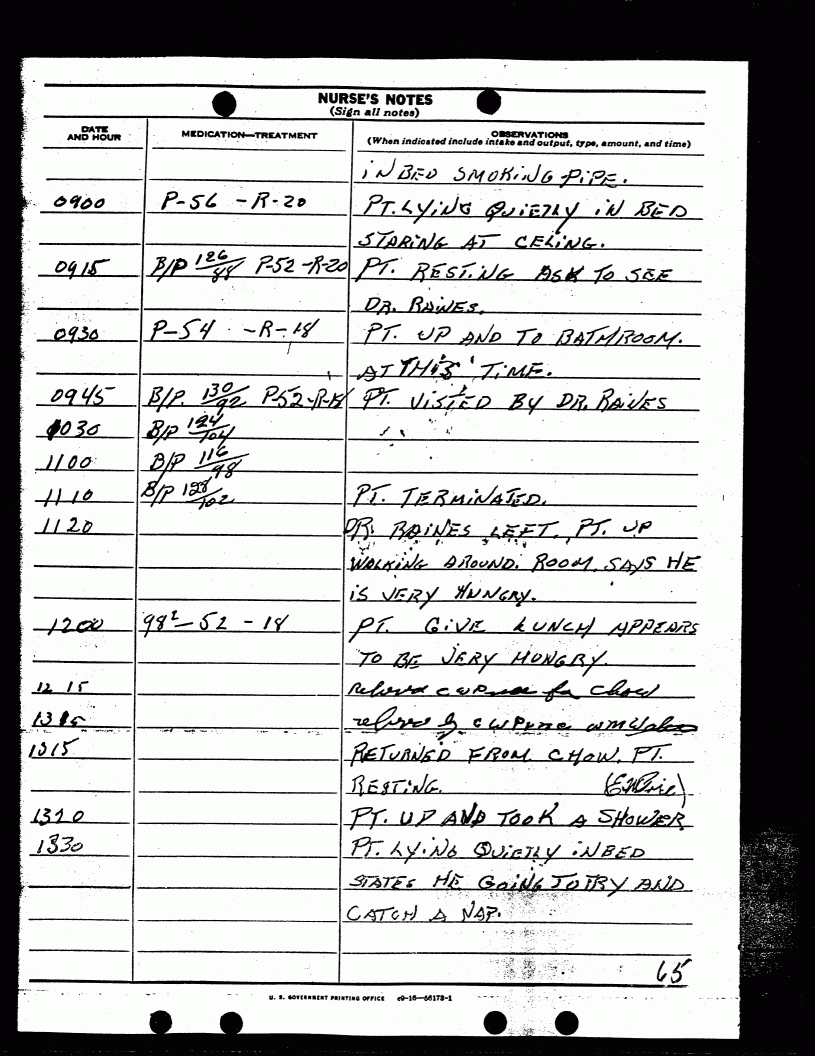 NURSE'S NOTES
(Sign all notes)
DATE AND HOUR MEDICATION—TREATMENT OBSERVATIONS
(When indicated include intake and output, type, amount, and time)
IN BED SMOKING PIPE.
0900 P-56 -R-20 PT. LYING QUIETLY IN BED
STARING AT CELING.
0915 B/P 126/88 P-52-R-20 PT. RESTING ASK TO SEE
DR. RAINES.
0930 P-54 -R-18 PT. UP AND TO BATHROOM.
AT THIS TIME.
0945 B/P. 130/92 P52-R-18 PT. VISTED BY DR. RAINES
1030 B/P 124/104
1100 B/P 116/98
1110 B/P 128/102 PT. TERMINATED.
1120 DR. RAINES LEFT. PT. UP
WALKING AROUND. ROOM. SAYS HE
IS VERY HUNGRY.
1200 98² - 52 - 18 PT. GIVE LUNCH APPEARS
TO BE VERY HUNGRY.
12 15 for chow
1315 by
1315 RETURNED FROM CHOW. PT.
RESTING.
1320 PT. UP AND TOOK A SHOWER
1330 PT. LYING QUIETLY IN BED
STATES HE GOING TO TRY AND
CATCH A NAP.
65
U. S. GOVERNMENT PRINTING OFFICE c9-16-66173-1